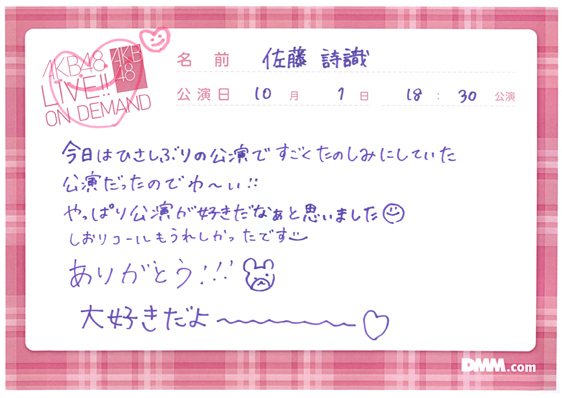 AKB48 AKB48
LIVE!!
ON DEMAND
名前 佐藤 詩識
公演日 10月 1日 18:30 公演
今日はひさしぶりの公演ですごくたのしみにしていた
公演だったのでわ〜ぃ!!
やっぱり公演が好きだなぁと思いました
しおりコールもうれしかったです
ありがとう!!!
大好きだよ〜〜〜〜〜♡
DMM.com